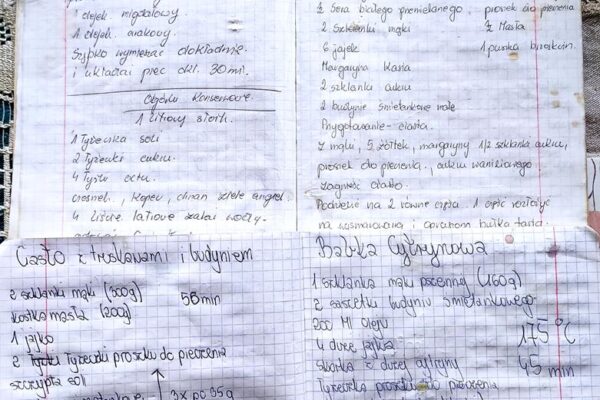 1 olejek migdałowy
1 olejek arakowy.
Szybko wymieszać dokładnie
i układać piec okł. 30 mi.
Ogórki Konserwowe.
1 litrowy słoik
1 Łyżeczka soli
2 Łyżeczki cukru.
4 Łyżki octu.
czosnek, koper, chrzan ziele angiel.
4 liście laurowe zalać wodą
½ Sera białego przemielonego, proszek do pieczenia
2 Szklanki mąki ½ Masła
6 jajek 1 puszka brzoskwin.
Margaryna Kasia
2 szklanki cukru
2 budynie śmietankowe małe
Przygotowanie - ciasta.
Z mąki, 5 żółtek, margaryny 1/2 szklanka cukru,
proszek do pieczenia, cukru waniliowego
zagnieść ciasto.
Podzielić na 2 równe części. 1 część rozłożyć
na wysmarowaną i bułka tarta.
Ciasto z truskawami i budyniem
2 szklanki mąki (300g) 55 min
kostka masła (200g)
1 jajko
2 Łyżeczki proszku do pieczenia
szczypta soli
3x po 35g
Babka Cytrynowa
1 szklanka mąki pszennej (160g)
2 saszetki budyniu śmietankowego
200 Ml Oleju 175°C
4 duże jajka
skórka z dużej cytryny 45 min
Łyżeczka proszku do pieczenia